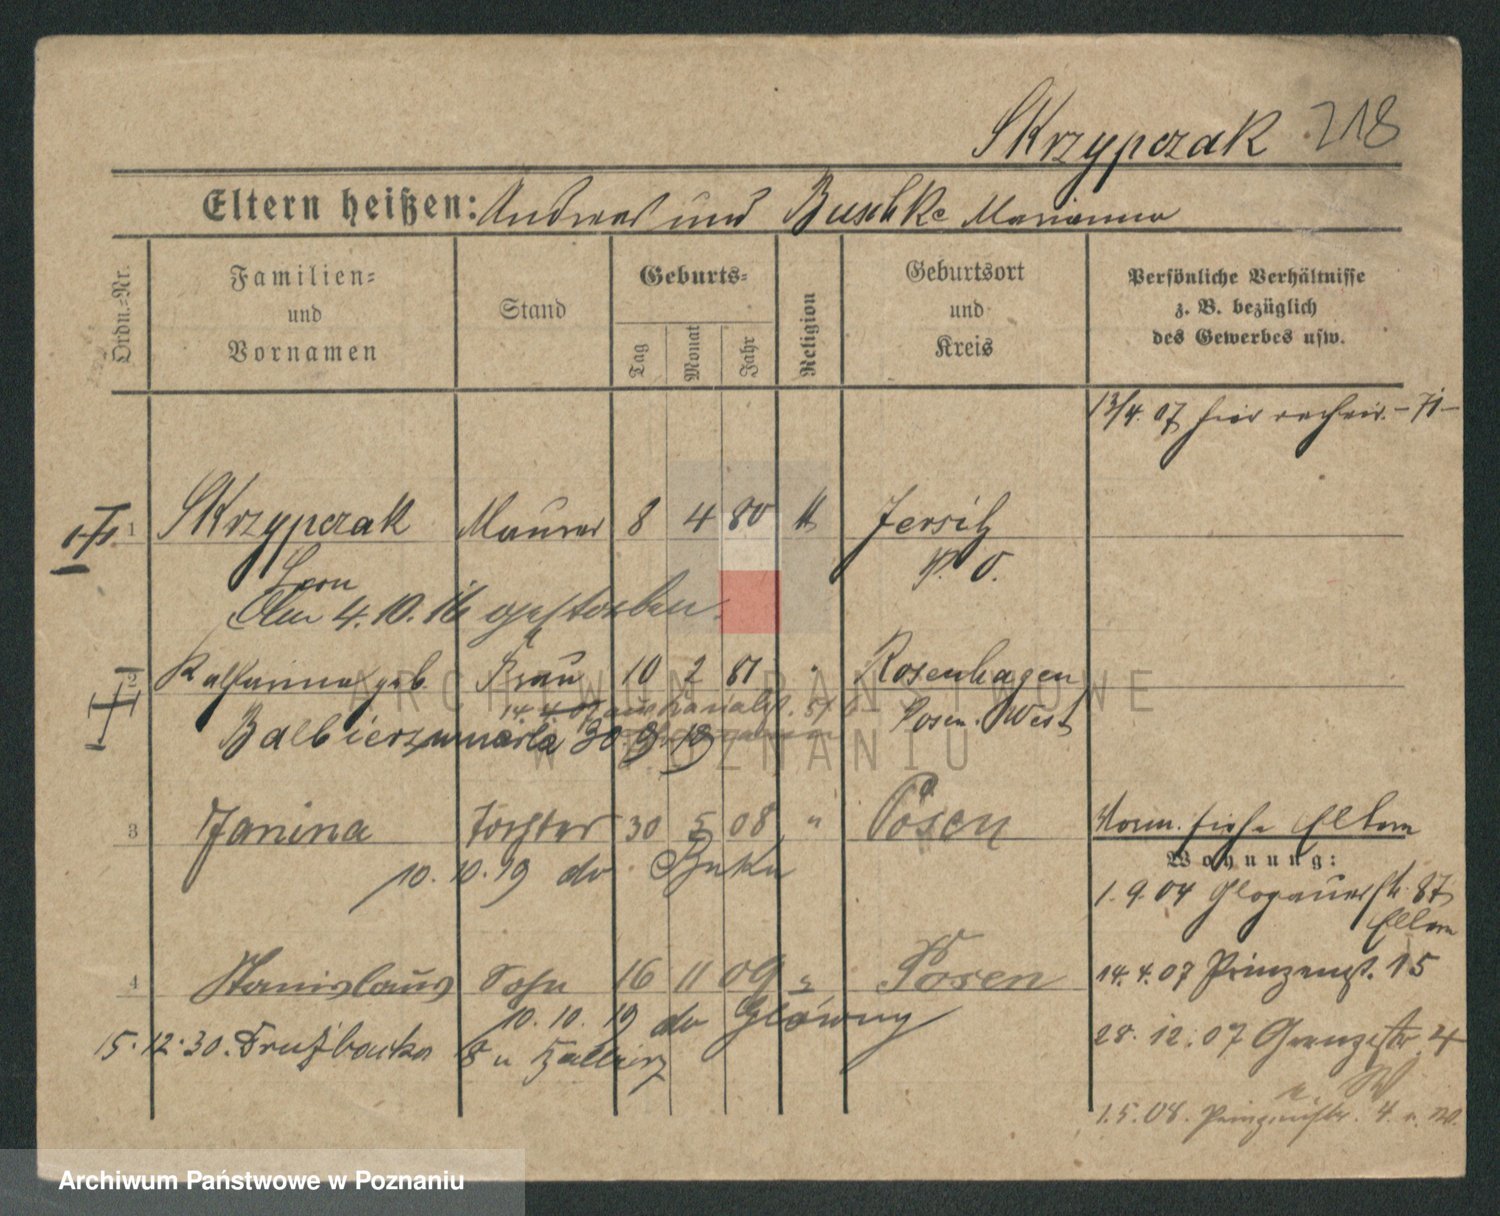 Skrzypczak 218
Eltern heißen: Andreas und Buschke Marianna
Ordn.=Nr.
Familien=
und
Vornamen
Stand
Geburts=
Tag
Monat
Jahr
Religion
Geburtsort
und
Kreis
Persönliche Verhältnisse
z. B. bezüglich
des Gewerbes usw.
13/4. 07 hier
1 Skrzypczak Maurer 8 4 80 Jersitz
Leon P. O.
Am 4.10.16 gestorben.
2 Katharina geb. Frau 10 2 81 Rosenhagen
14. 4. 07 aus
Balbierz 30 9. 19 Posen. West
3 Janina Tochter 30 5 08 " Posen
10. 10. 19
Vorm. siehe Eltern
Wohnung:
1. 9. 04 Glogauerstr. 87
Eltern
4 Stanislaus Sohn 16 11 09 Posen
14. 4. 07 Prinzenst. 15
10. 10. 19 do Główny
15. 12. 30.
28. 12. 07 Grenzstr. 4
1. 5. 08. 4.
ARCHIWUM PAŃSTWOWE
W POZNANIU
Archiwum Państwowe w Poznaniu